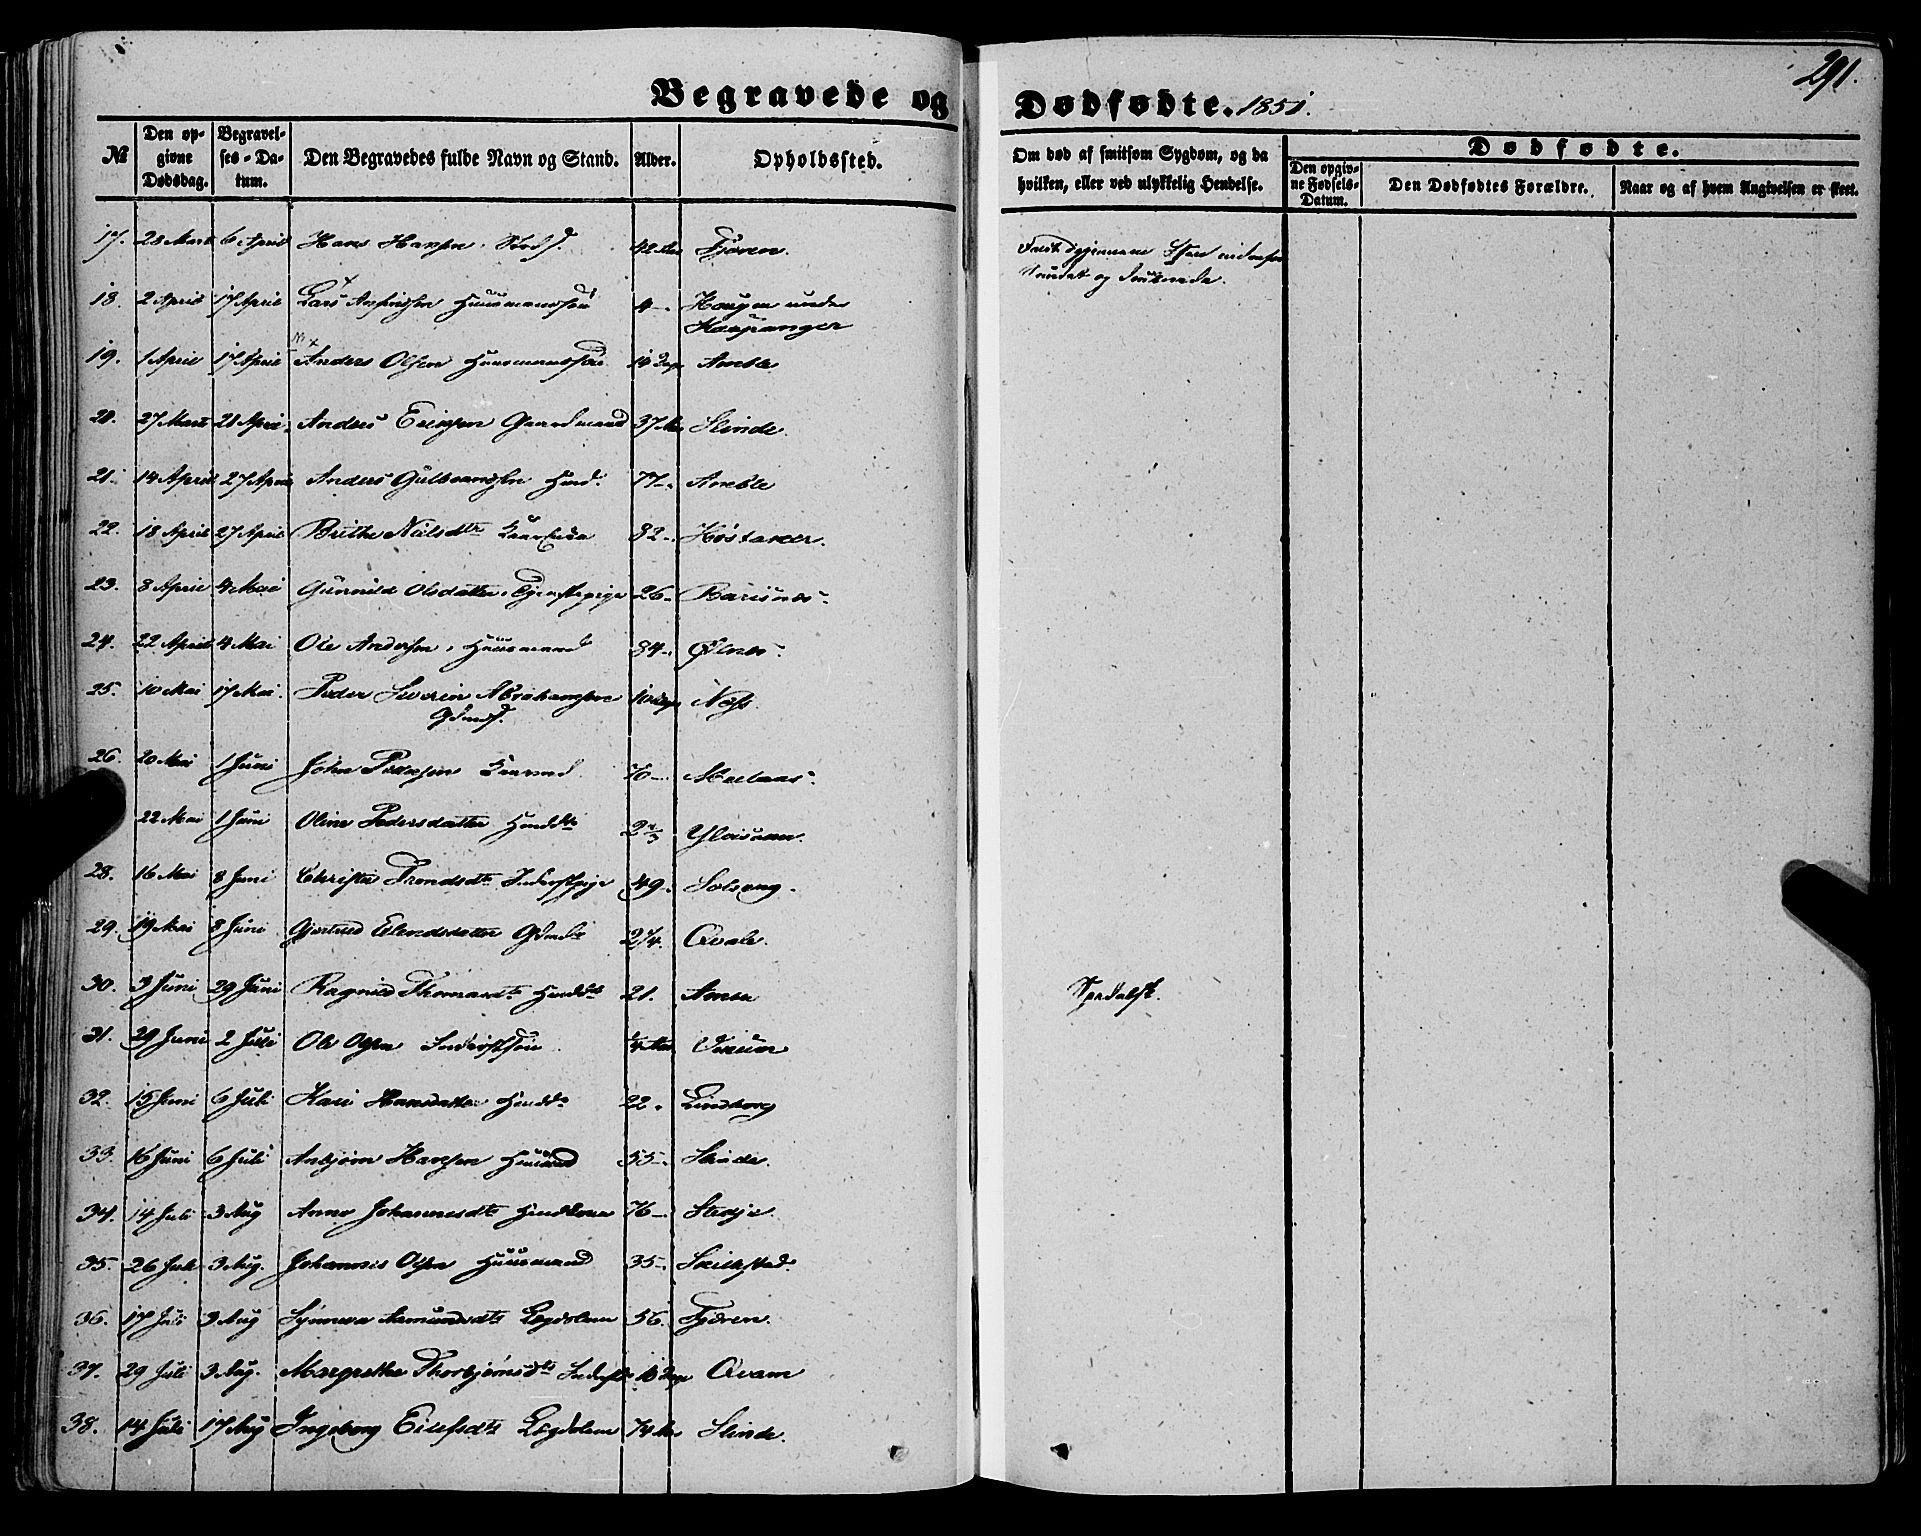 291.
Begravede og Dødfødte. 1851.
№
Den opgivne Dødsdag.
Begravelses-Datum.
Den Begravedes fulde Navn og Stand.
Alder.
Opholdssted.
Om død af smitsom Sygdom, og da hvilken, eller ved ulykkelig Hendelse.
Dødfødte.
Den opgivne Fødsels-Datum.
Den Dødfødtes Forældre.
Naar og af hvem Angivelsen er skeet.
17. 28 Marts 6 April Hans Hansen 42 Aar Fjæren.
og druknede.
18. 2 April 17 April Lars Huusmandssøn 4 Haugen under
Kaupanger
19. 1 April 17 April Anders Olsen Huusmandssøn 14 Dage Amble
20. 27 Marts 21 April Anders Ericsen Gaardmand 37 Aar Slinde.
21. 14 April 27 April Anders Gulbrandsen Husd. 77 Amble
22. 18 April 27 April Brithe Nielsdtr 82 Høstaker.
23. 8 April 4 Mai Gunnild Olsdatter Tjenstepige 26 Barsnes
24. 22 April 4 Mai Ole Andersen, Huusmand 84 Ølnes
25. 10 Mai 17 Mai. Peder Severin Abrahamsen 10 Dage Næss.
Gdmds.
26. 20 Mai 1 Juni John Pedersen 70
22 Mai 1 Juni Oline Pedersdatter Husdtr Ylvisaaer.
28. 16 Mai 8 Juni Christi Trondsdtr 49. Solsvng.
29. 19 Mai 8 Juni Gjertrud Erlendsdatter Qvale.
30. 3 Juni 29 Juni Ragnild Thomasdtr Husdtr 21. Amla
Spedalsk.
31. 29 Juni 2 Juli Ole Olsen Inderstsøn Aar
32. 15 Juni 6 Juli Kari Hansdatter Husdtr 22. Lindborg
33. 16 Juni 6 Juli Anbjørn Hansen Huusmand 55 Slinde.
34. 14 Juli 3 Aug Anne Johannesdtr 76 Stedje.
35. 26 Juli 3 Aug. Johannes Olsen Huusmand 35 Skilkstad.
36. 17 Juli 3 Aug Synneva Aamundsdtr Lægdslem 56. Fjæren.
37. 29 Juli 3 Aug. Margrethe Thorbjørnsdtr Dage Qvam
38. 14 Juli 17 Aug Ingeborg Eilefsdtr Lægdslem 74 Aar Slinde.